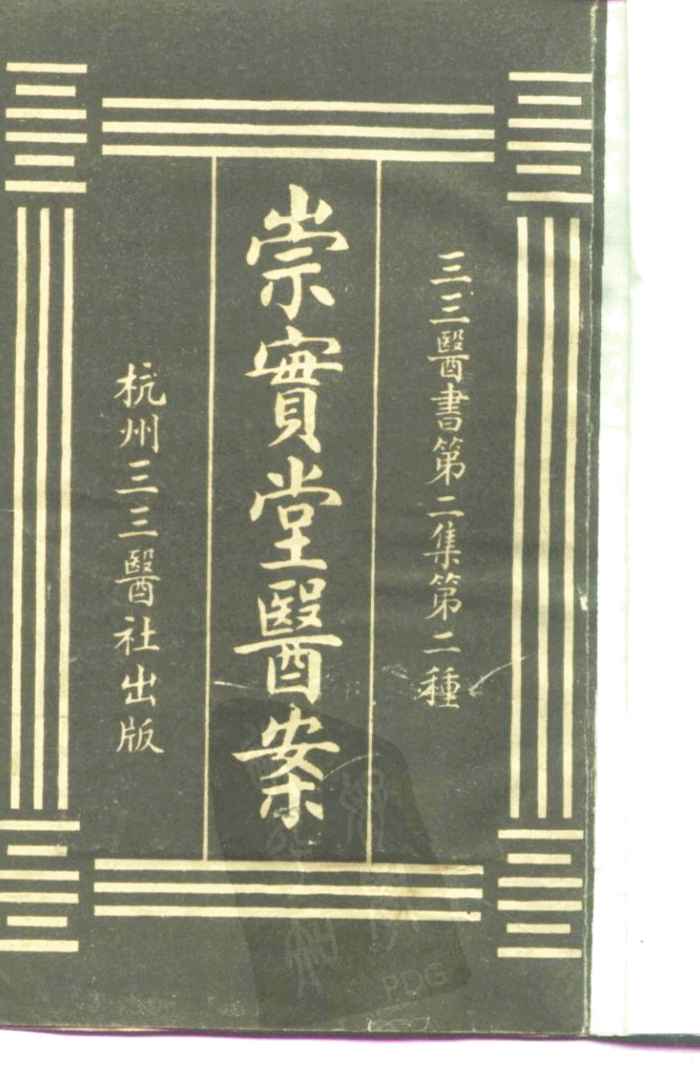 三三醫書第二集第二種
崇實堂醫案
杭州三三醫社出版
PDG